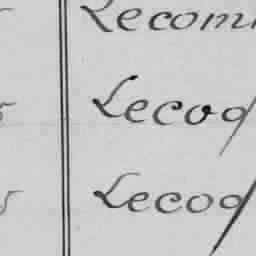 Lecom
Lecoq
Lecoq